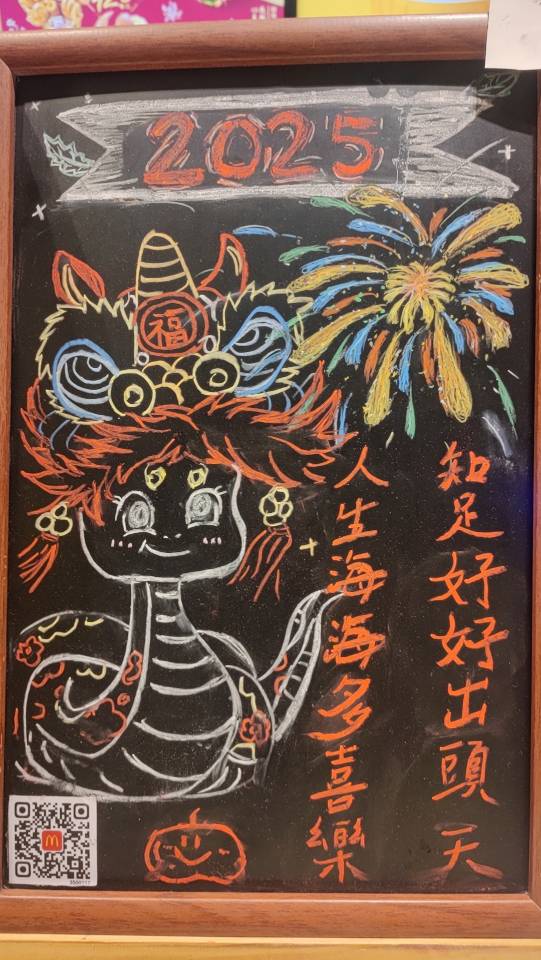 2025
福
知足好好出頭天
人生海海多喜樂